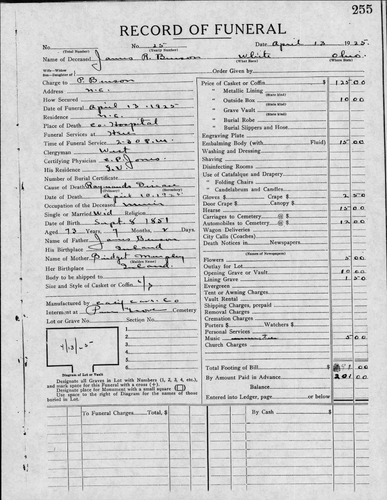 255
RECORD OF FUNERAL
No. No. 15 Date April 13 1925
(Total Number) (Yearly Number)
Name of Deceased James R. Benson White Ohio
(What Race) (Where Born)
Charge to P. Benson
Order Given by
Address N.C.
How Secured
Date of Funeral April 13 1925
Residence N.C.
Place of Death Co. Hospital
Funeral Services at
Time of Funeral Service 2:30 P.M.
Clergyman West
Certifying Physician E.P. Jones
His Residence
Number of Burial Certificate
Cause of Death Raynauds Disease
(Primary) (Secondary)
Date of Death April 10, 1925
Occupation of the Deceased
Single or Married Wid Religion
Date of Birth Sept. 8 1851
Aged 73 Years 7 Months 2 Days
Name of Father James Benson
His Birthplace Ireland
Name of Mother Bridget Murphy
(Maiden Name)
Her Birthplace Ireland
Body to be shipped to
Size and Style of Casket or Coffin
Manufactured by
Interment at Cemetery
Lot or Grave No. Section No.
Diagram of Lot or Vault
Designate all Graves in Lot with Numbers (1, 2, 3, 4, etc.),
and mark space for this Funeral with a cross (+).
Designate place for Monument with a small square (□)
Use space to the right of Diagram for the names of those
buried in Lot.
Price of Casket or Coffin $ 125 00
" Metallic Lining
(State Kind)
" Outside Box 10 00
(State Kind)
" Grave Vault
(State Kind)
" Burial Robe
(State Kind)
" Burial Slippers and Hose
Engraving Plate
Embalming Body (with Fluid) 15 00
Washing and Dressing
Shaving
Disinfecting Rooms
Use of Catafalque and Drapery
" Folding Chairs
" Candelabrum and Candles
Gloves $ Crape $ 2 50
Door Crape $ Canopy $
Hearse 15 00
Carriages to Cemetery @ $
Automobiles to Cemetery @ $ 12 00
Wagon Deliveries
City Calls (Coaches)
Death Notices in Newspapers
(Names of Newspapers)
Flowers 5 00
Outlay for Lot
Opening Grave or Vault 10 00
Lining Grave 1 50
Evergreen
Tent or Awning Charges
Vault Rental
Shipping Charges, prepaid
Removal Charges
Cremation Charges
Porters $ Watchers $
Personal Services
Music 5 00
Church Charges
Total Footing of Bill $
By Amount Paid in Advance 201 00
Balance
Entered into Ledger, page or below.
To Funeral Charges, Total $
By Cash $